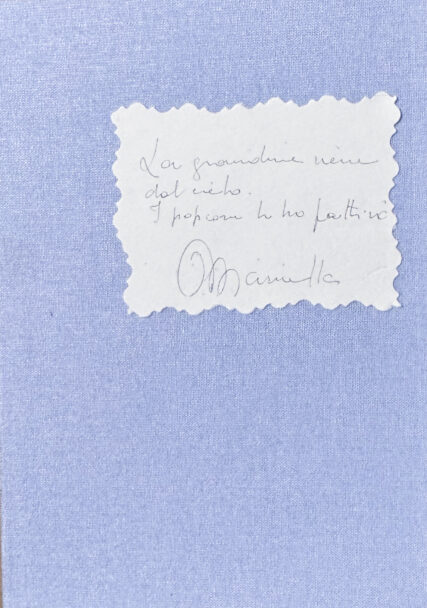 La grandine viene
dal cielo.
I popcorn li ho fatti io